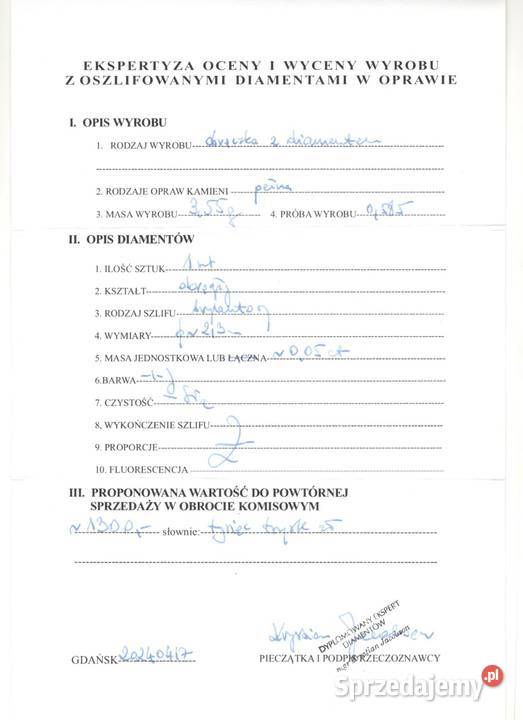 EKSPERTYZA OCENY I WYCENY WYROBU
Z OSZLIFOWANYMI DIAMENTAMI W OPRAWIE
I. OPIS WYROBU
1. RODZAJ WYROBU obrączka z diamentem
2. RODZAJE OPRAW KAMIENI pełna
3. MASA WYROBU 3,55g 4. PRÓBA WYROBU 0,585
II. OPIS DIAMENTÓW
1. ILOŚĆ SZTUK 1 szt
2. KSZTAŁT okrągły
3. RODZAJ SZLIFU brylantowy
4. WYMIARY ~ 2,3
5. MASA JEDNOSTKOWA LUB ŁĄCZNA ~ 0,05 ct
6.BARWA -I-J
7. CZYSTOŚĆ
8. WYKOŃCZENIE SZLIFU
9. PROPORCJE
10. FLUORESCENCJA
III. PROPONOWANA WARTOŚĆ DO POWTÓRNEJ
SPRZEDAŻY W OBROCIE KOMISOWYM
~ 1300,- słownie: tysiąc trzysta zł
DYPLOMOWANY EKSPERT
DIAMENTÓW
GDAŃSK 20240417 PIECZĄTKA I PODPIS RZECZOZNAWCY
Sprzedajemy.pl